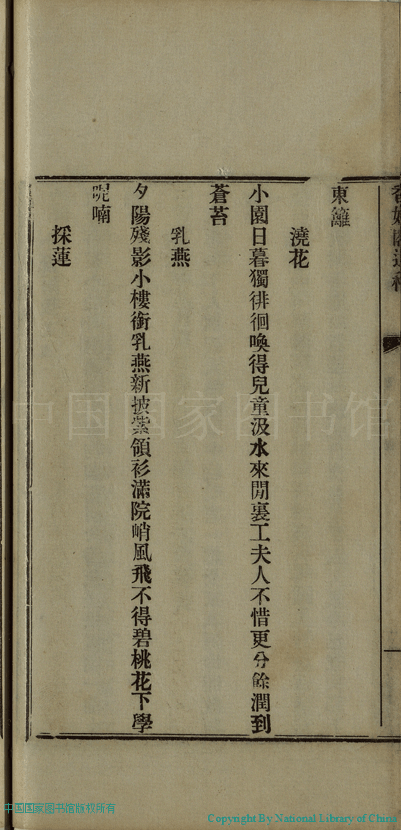 東籬
澆花
小園日暮獨徘徊喚得兒童汲水來閒裏工夫人不惜更分餘潤到
蒼苔
乳燕
夕陽殘影小樓銜乳燕新披紫領衫滿院峭風飛不得碧桃花下學
呢喃
採蓮
中国国家图书馆
中国国家图书馆版权所有
Copyright By National Library of China